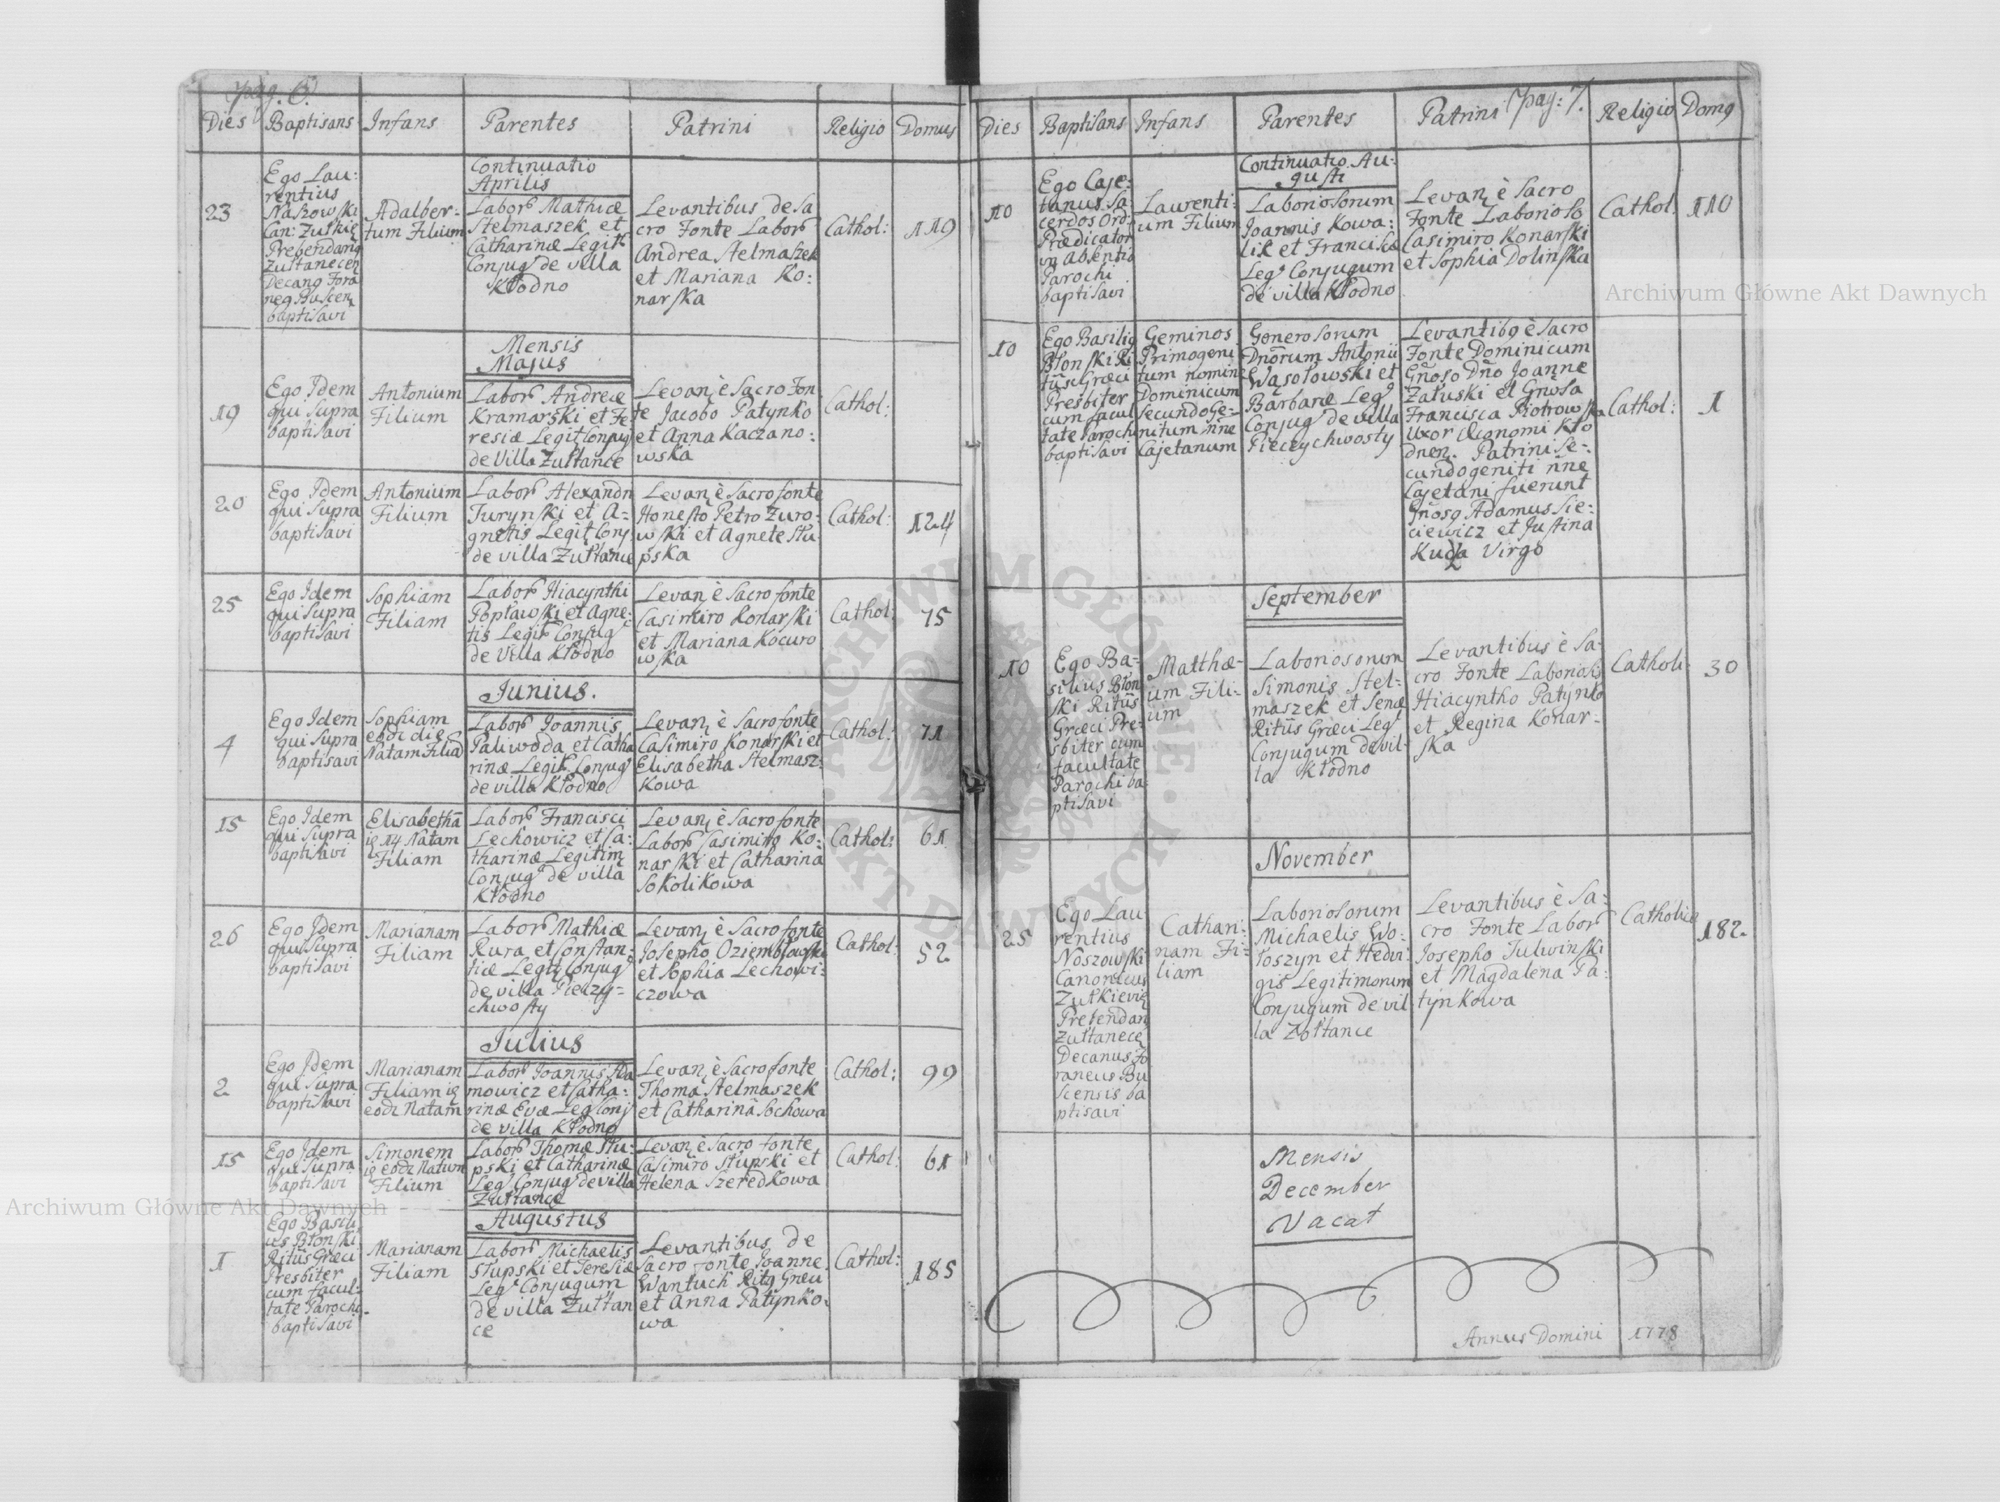 pag. 6.
Dies Baptisans Infans Parentes Patrini Religio Domus
Continuatio
Aprilis
23
Ego Lau:
rentius
Naszowski
Can: Zuskię
Prebendarq
Zułtanecen
Decanq Fora
neq Buscen
baptisavi
Adalber-
tum Filium
Labor. Mathiæ
Stelmaszek et
Catharinæ Legit.
Conjug. de villa
Kłodno
Levantibus de Sa
cro Fonte Labor.
Andrea Stelmaszek
et Mariana Ko:
narska
Cathol:
119
Mensis
Majus
19
Ego Idem
qui Supra
baptisavi
Antonium
Filium
Labor. Andreæ
Kramarski et Te-
resiæ Legit. Conjug.
de Villa Zułtance
Levan. è Sacro Fon-
te Jacobo Patynko
et Anna Kaczano:
wska
Cathol:
20
Ego Idem
qui Supra
baptisavi
Antonium
Filium
Labor. Alexandri
Turynski et A-
gnetis Legit. Conj.
de villa Zułtance
Levan. è Sacro fonte
Honesto Petro Zuro-
wski et Agnete Stu-
pska
Cathol:
124
25
Ego Idem
qui Supra
baptisavi
Sophiam
Filiam
Labor. Hiacynthi
Popławski et Agne-
tis Legit. Conjug.
de Villa Kłodno
Levan. è Sacro fonte
Casimiro Konarski
et Mariana Kocuro
wska
Cathol:
75
Junius.
4
Ego Idem
qui Supra
baptisavi
Sophiam
eodi die
Natam Filiã
Labor. Joannis
Paliwoda et Catha
rinæ Legit. Conjug.
de villa Kłodno
Levan. è Sacro fonte
Casimiro Konarski et
Elisabetha Stelmasz-
kowa
Cathol:
71
15
Ego Idem
qui Supra
baptisivi
Elisabethã
ie 14 Natam
Filiam
Labor. Francisci
Lechowicz et Ca:
tharinæ Legitim
Conjug. de villa
Kłodno
Levan. è Sacro fonte
Labor. Casimiro Ko:
narski et Catharina
Sokolikowa
Cathol:
61
26
Ego Idem
qui Supra
baptisavi
Marianam
Filiam
Labor. Mathiæ
Kura et Constan-
tiæ Legit. Conjug.
de villa Pieczy-
chwosty
Levan. è Sacro fonte
Josepho Oziembłowski
et Sophia Lechowi-
czowa
Cathol:
52
Julius
2
Ego Idem
qui Supra
baptisavi
Marianam
Filiam ie
eodi Natam
Labor. Joannis Ada
mowicz et Catha:
rinæ Evæ Leg. Conj.
de villa Kłodno
Levan. è Sacro fonte
Thoma Stelmaszek
et Catharina Sochowa
Cathol:
99
15
Ego Idem
qui Supra
baptisavi
Simonem
ie eodi Natum
Filium
Labor. Thomæ Stu-
pski et Catharinæ
Leg. Conjug. de villa
Zułtance
Levan. è Sacro fonte
Casimiro Stupski et
Helena Szeredkowa
Cathol:
61
Augustus
1
Ego Basili
us Błonski
Ritûs Græci
Presbiter
cum facul-
tate Parochi.
baptisavi
Marianam
Filiam
Labor. Michaelis
Stupski et Teresiæ
Leg. Conjugum
de villa Zułtan
ce
Levantibus de
Sacro fonte Joanne
Wantuch Ritq Græci
et Anna Patynko-
wa
Cathol:
185
pag: 7.
Dies Baptisans Infans Parentes Patrini Religio Domq
Continuatio Au-
gusti
10
Ego Caje-
tanus Sa-
cerdos Ord.
Prædicator
in Absentia
Parochi
baptisavi
Laurenti-
um Filium
Laboriosorum
Joannis Kowa:
lik et Franciscæ
Leg. Conjugum
de villa Kłodno
Levan. è Sacro
Fonte Laborioso
Casimiro Konarski
et Sophia Dolinska
Cathol:
110
10
Ego Basiliq
Błonski Ri
tûs Græci
Presbiter
cum facul
tate Parochi
baptisavi
Geminos
Primogeni
tum nomine
Dominicum
Secundo Ge-
nitum nñe
Cajetanum
Generosorum
Dnorum Antonii
Wąsołowski et
Barbaræ Leg.
Conjug. de villa
Pieczychwosty
Levantibq è Sacro
Fonte Dominicum
Gnoso Dño Joanne
Załuski et Gnosa
Francisca Piotrowska
Uxor Œconomi Kło
dnen. Patrini Se-
cundogeniti nñe
Cajetani fuerunt
Gnosq Adamus Sie-
ciewicz et Justina
Virgo
Cathol:
1
September
10
Ego Ba-
silius Błon
ski Ritûs
Græci Pre-
sbiter cum
facultate
Parochi ba-
ptisavi
Matthæ-
um Fili-
um
Laboriosorum
Simonis Stel-
maszek et Senæ
Ritûs Græci Leg.
Conjugum de vil-
la Kłodno
Levantibus è Sa-
cro Fonte Laboriosis
Hiacyntho Patynko
et Regina Konar-
ska
Catholi:
30
November
25
Ego Lau
rentius
Noszowski
Canonicus
Zułkievię
Prebendarq
Zułtanecę
Decanus Fo
raneus Bu
scensis ba
ptisavi
Cathari-
nam Fi-
liam
Laboriosorum
Michaelis Wo-
łoszyn et Hedvi
gis Legitimorum
Conjugum de vil
la Zołtance
Levantibus è Sa-
cro Fonte Labor
Josepho Julwinski
et Magdalena Pa-
tynkowa
Catholicæ
182.
Mensis
December
Vacat
Annus Domini 1778
Archiwum Główne Akt Dawnych
Archiwum Główne Akt Dawnych
ARCHIWUM GŁÓWNE AKT DAWNYCH